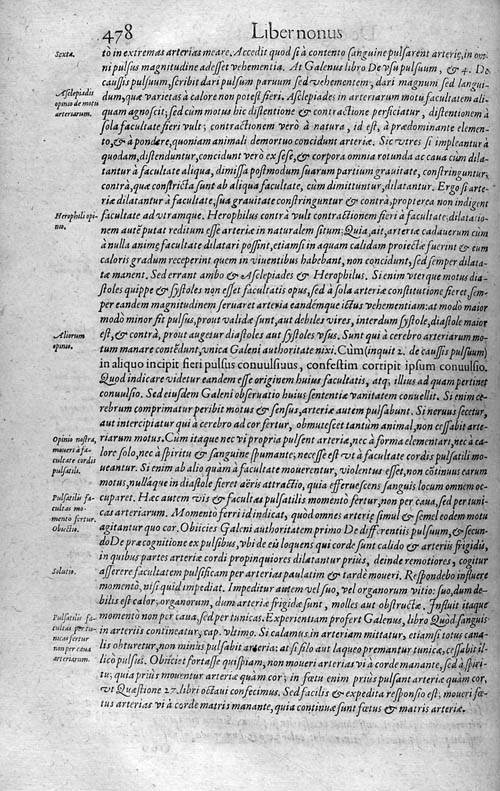 478
Liber nonus
Sexta.
tò in extremas arterias meare. Accedit quod si à contento sanguine pulsarent arteriæ, in om
ni pulsus magnitudine adesset vehementia. At Galenus libro De vsu pulsuum, & 4. De
caussis pulsuum, scribit dari pulsum paruum sed vehementem, dari magnum sed langui-
Asclepiadis
opinio de motu
arteriarum.
dum, quæ varietas à calore non potest fieri. Asclepiades in arteriarum motu facultatem ali-
quam agnoscit; sed cùm motus hic distentione & contractione perficiatur, distentionem à
sola facultate fieri vult; contractionem verò à natura, id est, à prædominante elemen-
to, & à pondere, quoniam animali demortuo concidunt arteriæ. Sic vtres si impleantur à
quodam, distenduntur, concidunt verò ex sese, & corpora omnia rotunda ac caua cùm dila-
tantur à facultate aliqua, dimissa postmodum suarum partium grauitate, constringuntur;
contrà, quæ constricta sunt ab aliqua facultate, cùm dimittuntur, dilatantur. Ergo si arte-
riæ dilatantur à facultate, sua grauitate constringuntur & contrà, propterea non indigent
Herophili opi-
nio.
facultate ad vtramque. Herophilus contrà vult contractionem fieri à facultate; dilatatio-
nem autē putat reditum esse arteriæ in naturalem situm; Quia, ait, arteriæ cadauerum cùm
à nulla animę facultate dilatari possint, etiamsi in aquam calidam proiectæ fuerint & eum
caloris gradum receperint quem in viuentibus habebant, non concidunt, sed semper dilata-
tæ manent. Sed errant ambo & Asclepiades & Herophilus. Si enim vterque motus dia-
stoles quippe & systoles non esset facultatis opus, sed à sola arteriæ constitutione fieret, sem-
per eandem magnitudinem seruaret arteria eandémque ictus vehementiam: at modò maior
modò minor fit pulsus, prout validæ sunt, aut debiles vires, interdum systole, diastole maior
Aliorum
opinio.
est, & contrà, prout augetur diastoles aut systoles vsus. Sunt qui à cerebro arteriarum mo-
tum manare contēdunt, vnica Galeni authoritate nixi. Cùm (inquit 2. de caussis pulsuum)
in aliquo incipit fieri pulsus conuulsiuus, confestim corripit ipsum conuulsio.
Quod indicare videtur eandem esse originem huius facultatis, atq; illius ad quam pertinet
conuulsio. Sed eiusdem Galeni obseruatio huius sententiæ vanitatem conuellit. Si enim ce-
rebrum comprimatur peribit motus & sensus, arteriæ autem pulsabunt. Si neruus secetur,
aut intercipiatur qui à cerebro ad cor fertur, obmutescet tantum animal, non cessabit arte-
Opinio nostra,
moueri à fa-
cultate cordis
pulsatili.
riarum motus. Cùm itaque nec vi propria pulsent arteriæ, nec à forma elementari, nec à ca-
lore solo, nec à spiritu & sanguine spumante; necesse est vt à facultate cordis pulsatili mo-
ueantur. Si enim ab alio quàm à facultate mouerentur, violentus esset, non cōtinuus earum
motus, nulláque in diastole fieret aëris attractio, quia efferuescens sanguis locum omnem oc-
Pulsatilis fa-
cultas mo-
mento fertur.
Obiectio.
cuparet. Hæc autem vis & facultas pulsatilis momentò fertur, non per caua, sed per tuni-
cas arteriarum. Momento ferri id indicat, quòd omnes arteriæ simul & semel eodem motu
agitantur quo cor. Obiicies Galeni authoritatem primo De differentiis pulsuum, & secun-
do De præcognitione ex pulsibus, vbi de eis loquens qui corde sunt calido & arteriis frigidis,
in quibus partes arteriæ cordi propinquiores dilatantur priùs, deinde remotiores, cogitur
Solutio.
asserere facultatem pulsificam per arterias paulatim & tardè moueri. Respondebo influere
momentò, nisi quid impediat. Impeditur autem vel suo, vel organorum vitio: suo, dum de-
bilis est calor; organorum, dum arteriæ frigidæ sunt, molles aut obstructæ. Influit itaque
Pulsatilis fa-
cultas per tu-
nicas fertur
non per caua
arteriarum.
momentò non per caua, sed per tunicas. Experientiam profert Galenus, libro Quòd sanguis
in arteriis contineatur, cap. vltimo. Si calamus in arteriam mittatur, etiamsi totus cana-
lis obturetur, non minùs pulsabit arteria: at si filo aut laqueo premantur tunicæ, cessabit il-
licò pulsus. Obiiciet fortasse quispiam, non moueri arterias vi à corde manante, sed à spiri-
tu; quia priùs mouentur arteriæ quàm cor; in fœtu enim priùs pulsant arteriæ quàm cor,
vt Quæstione 27. libri octaui confecimus. Sed facilis & expedita responsio est; moueri fœ-
tus arterias vi à corde matris manante, quia continuæ sunt fœtus & matris arteriæ.